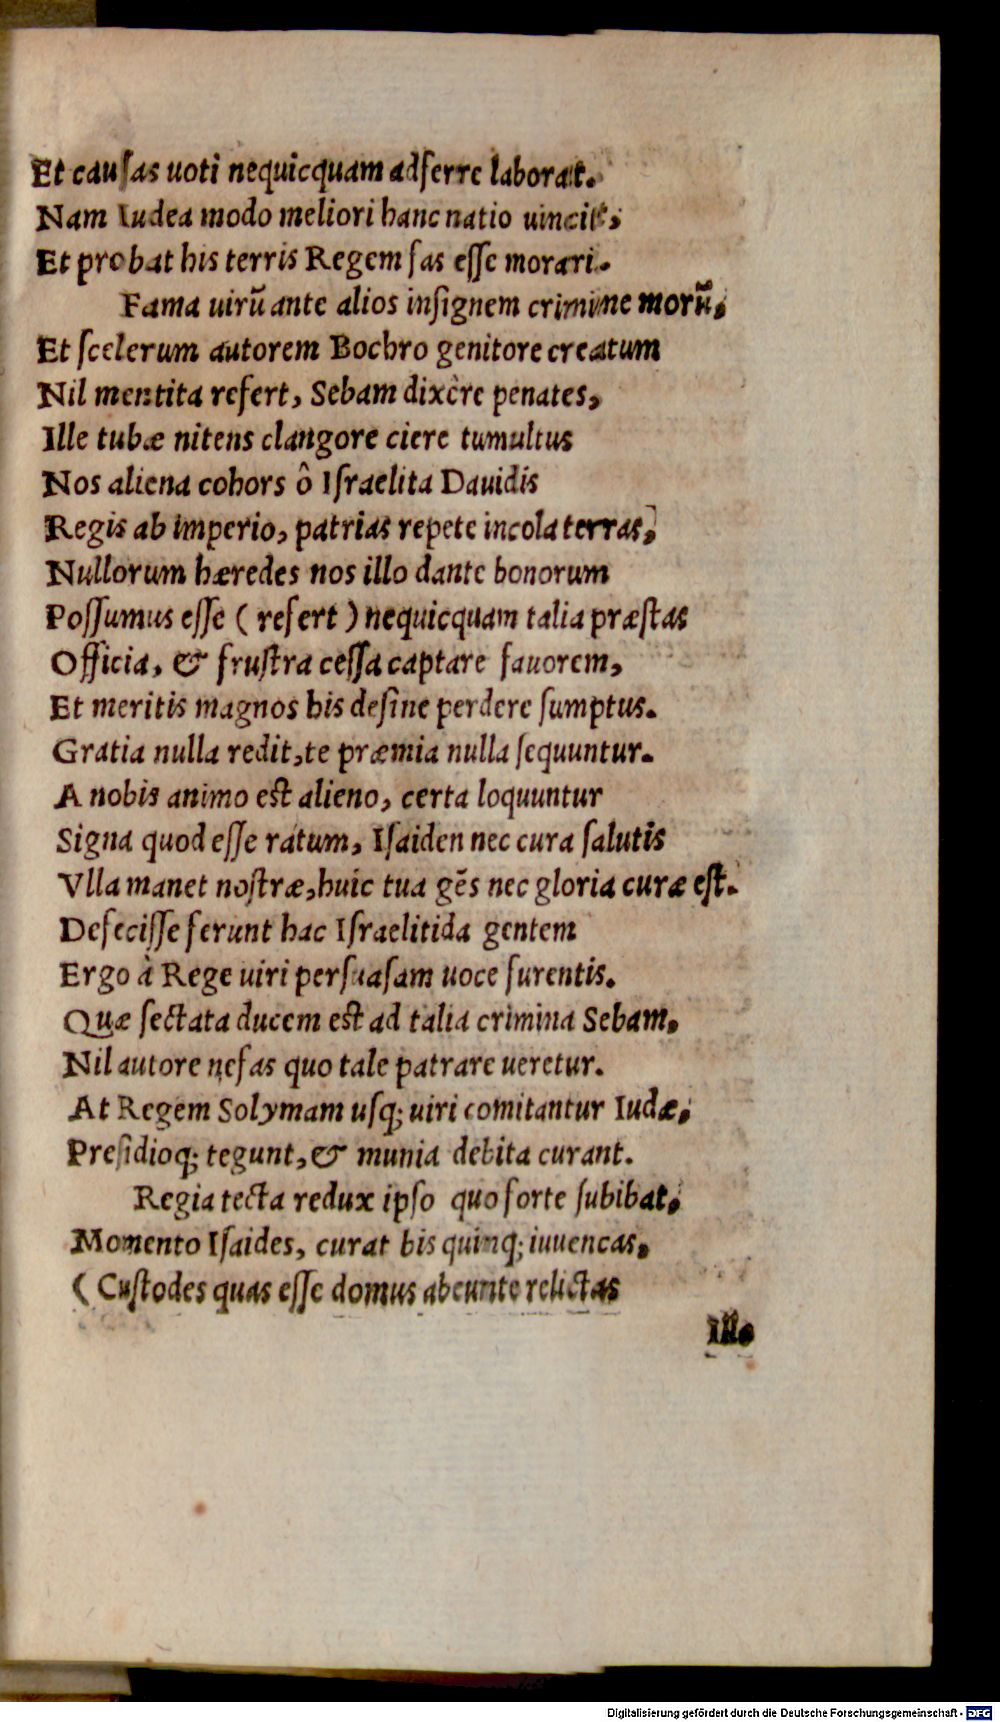 Et cauſas uoti nequicquam adferre laborat.
Nam Iudea modo meliori hanc natio uincit,
Et probat his terris Regem fas eſſe morari.
Fama uirũ ante alios inſignem crimine morũ,
Et ſcelerum autorem Bochro genitore creatum
Nil mentita refert, Sebam dixêre penates,
Ille tubæ nitens clangore ciere tumultus
Nos aliena cohors ô Iſraelita Dauidis
Regis ab imperio, patrias repete incola terras,
Nullorum hæredes nos illo dante bonorum
Poſſumus eſſe ( refert ) nequicquam talia præſtas
Officia, & fruſtra ceſſa captare fauorem,
Et meritis magnos his deſine perdere ſumptus.
Gratia nulla redit, te præmia nulla ſequuntur.
A nobis animo eſt alieno, certa loquuntur
Signa quod eſſe ratum, Iſaiden nec cura ſalutis
Vlla manet noſtræ, huic tua gẽs nec gloria curæ eſt.
Defeciſſe ferunt hac Iſraelitida gentem
Ergo à Rege uiri perſuaſam uoce furentis.
Quæ ſectata ducem eſt ad talia crimina Sebam,
Nil autore nefas quo tale patrare ueretur.
At Regem Solymam uſq; uiri comitantur Iudæ,
Preſidioq; tegunt, & munia debita curant.
Regia tecta redux ipſo quo forte ſubibat,
Momento Iſaides, curat bis quinq; iuuencas,
( Cuſtodes quas eſſe domus abeunte relictas
Digitalisierung gefördert durch die Deutsche Forschungsgemeinschaft - DFG